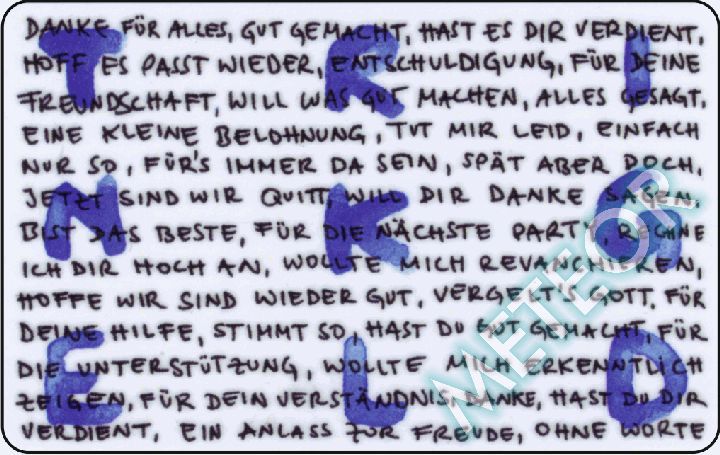 DANKE FÜR ALLES, GUT GEMACHT, HAST ES DIR VERDIENT,
HOFF ES PASST WIEDER, ENTSCHULDIGUNG, FÜR DEINE
FREUNDSCHAFT, WILL WAS GUT MACHEN, ALLES GESAGT,
EINE KLEINE BELOHNUNG, TUT MIR LEID, EINFACH
NUR SO, FÜR'S IMMER DA SEIN, SPÄT ABER DOCH,
JETZT SIND WIR QUITT, WILL DIR DANKE SAGEN,
BIST DAS BESTE, FÜR DIE NÄCHSTE PARTY, RECHNE
ICH DIR HOCH AN, WOLLTE MICH REVANCHIEREN,
HOFFE WIR SIND WIEDER GUT, VERGELT'S GOTT, FÜR
DEINE HILFE, STIMMT SO, HAST DU GUT GEMACHT, FÜR
DIE UNTERSTÜTZUNG, WOLLTE MICH ERKENNTLICH
ZEIGEN, FÜR DEIN VERSTÄNDNIS, DANKE, HAST DU DIR
VERDIENT, EIN ANLASS ZUR FREUDE, OHNE WORTE
T R I
N K G
E L D
METEOR